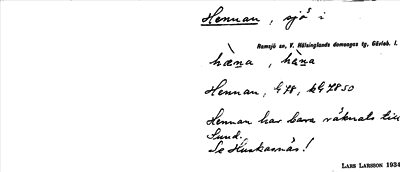 Hennan, sjö i
Ramsjö sn, V. Hälsinglands domsagas tg, Gävleb. l.
hæna, hæna
Hennan, G 78, kG 7850
Hennan har bara räknats till
Sund.
Se Huskasnäs!
LARS LARSSON 1934